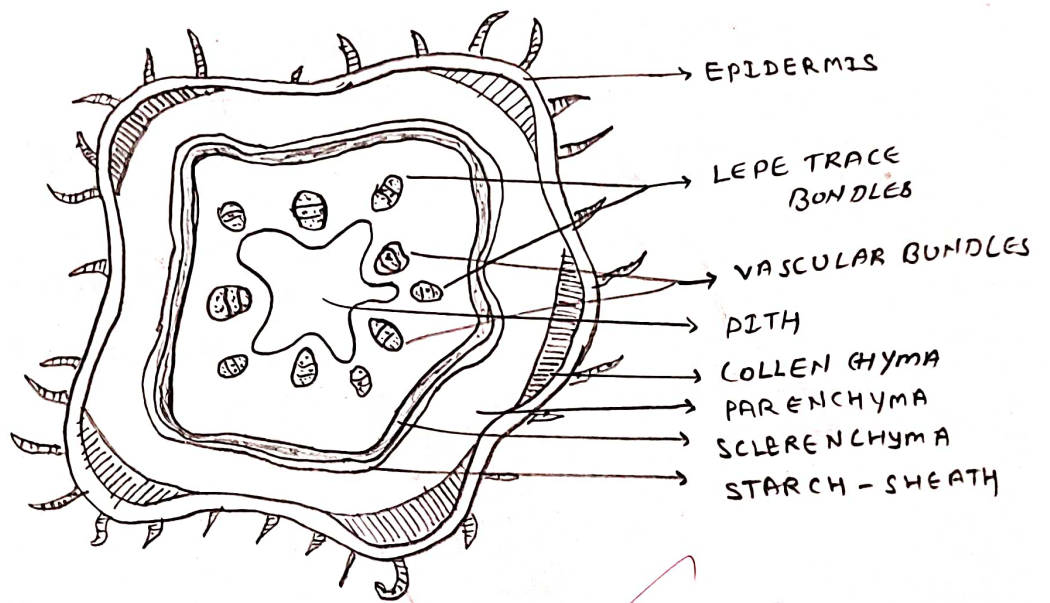 EPIDERMIS
LEPE TRACE
BONDLES
VASCULAR BUNDLES
PITH
COLLEN CHYMA
PARENCHYMA
SCLERENCHYMA
STARCH - SHEATH